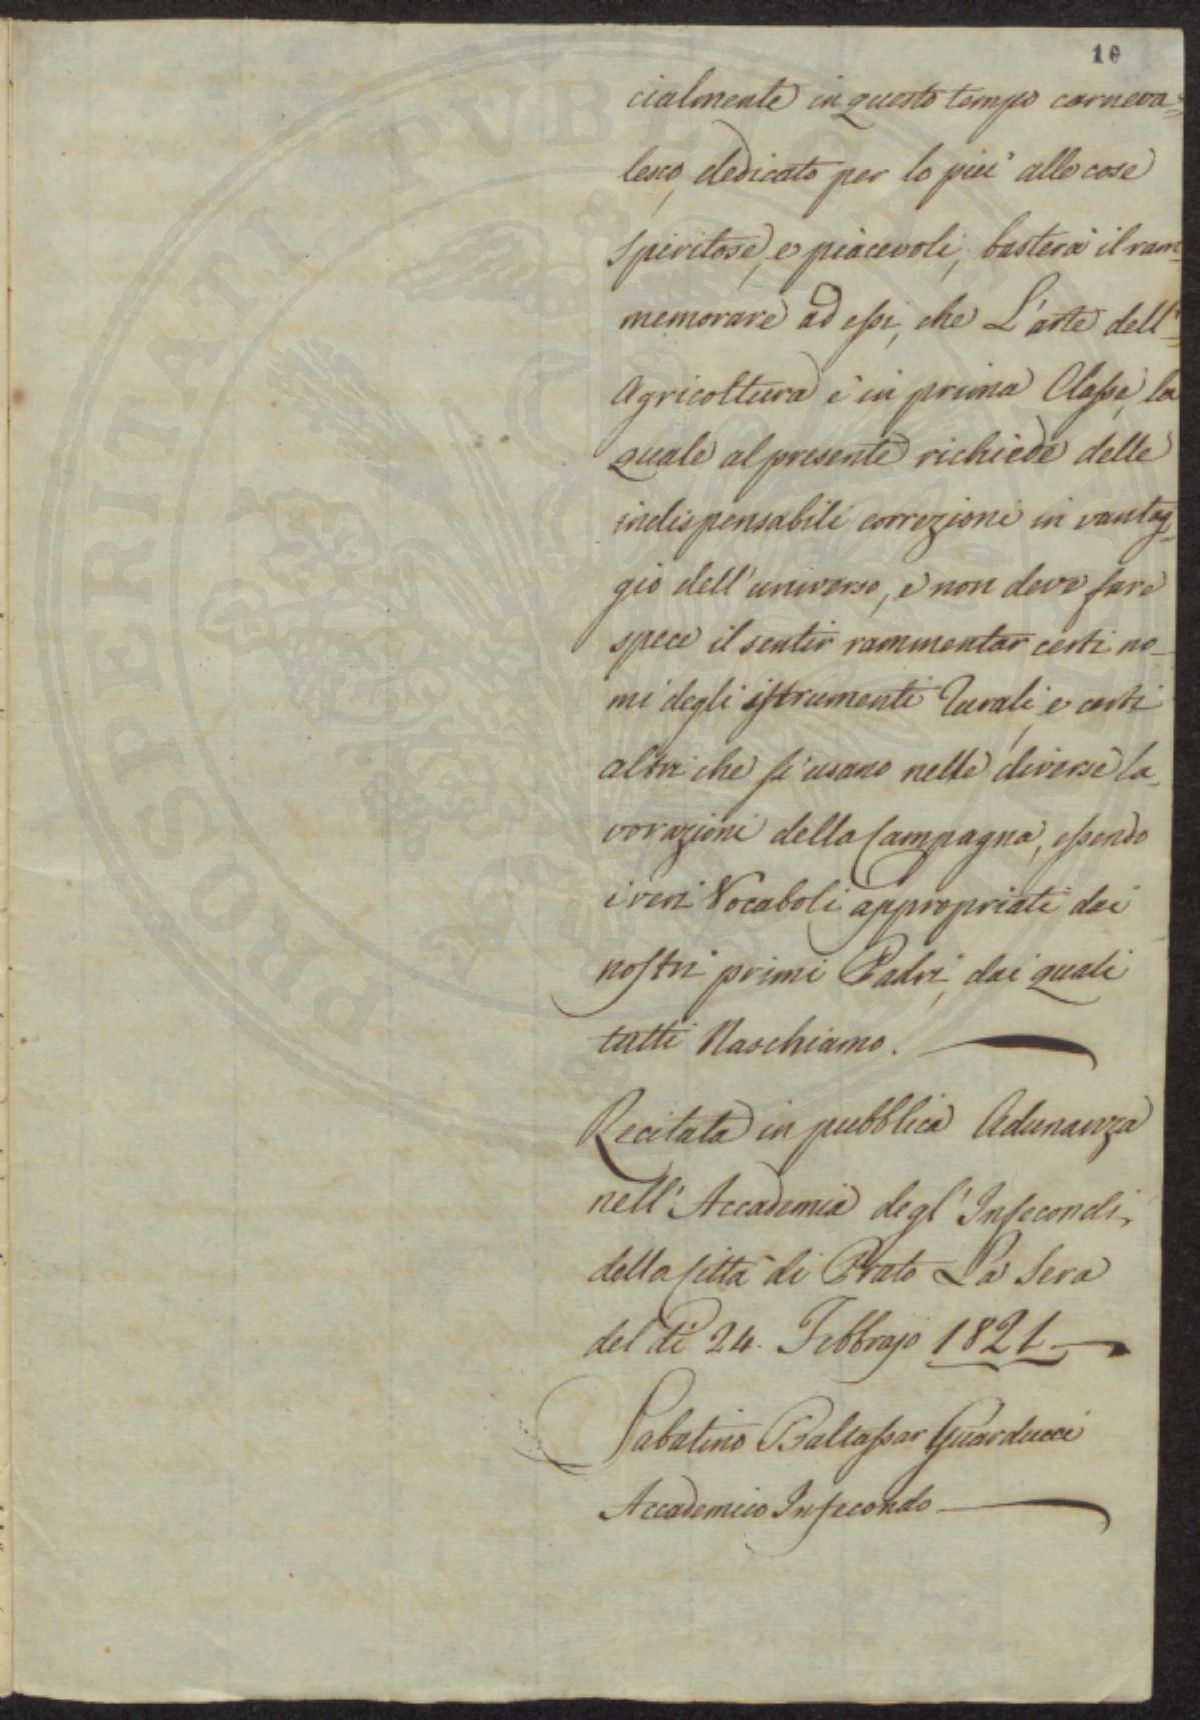 10
cialmente in questo tempo carneva=
lesco, dedicato per lo più alle cose
spiritose, e piacevoli, basterà il ram=
memorare ad essi, che L'arte dell'=
Agricoltura è in prima Classe, la
quale al presente richiede delle
indispensabili correzioni in vantag=
gio dell'universo, e non deve fare
spece il sentir rammentar certi no=
mi degli istrumenti Rurali, e certi
altri che si usano nelle diverse la=
vorazioni della Campagna, essendo
i veri Vocaboli appropriati dai
nostri primi Padri, dai quali
tutti Naschiamo.
Recitata in pubblica Adunanza
nell'Accademia degl'Infecondi,
della Città di Prato La Sera
del dì 24. Febbrajo 1821.
Sabatino Baltassar Guarducci
Accademico Infecondo
PROSPERITATI PVBL